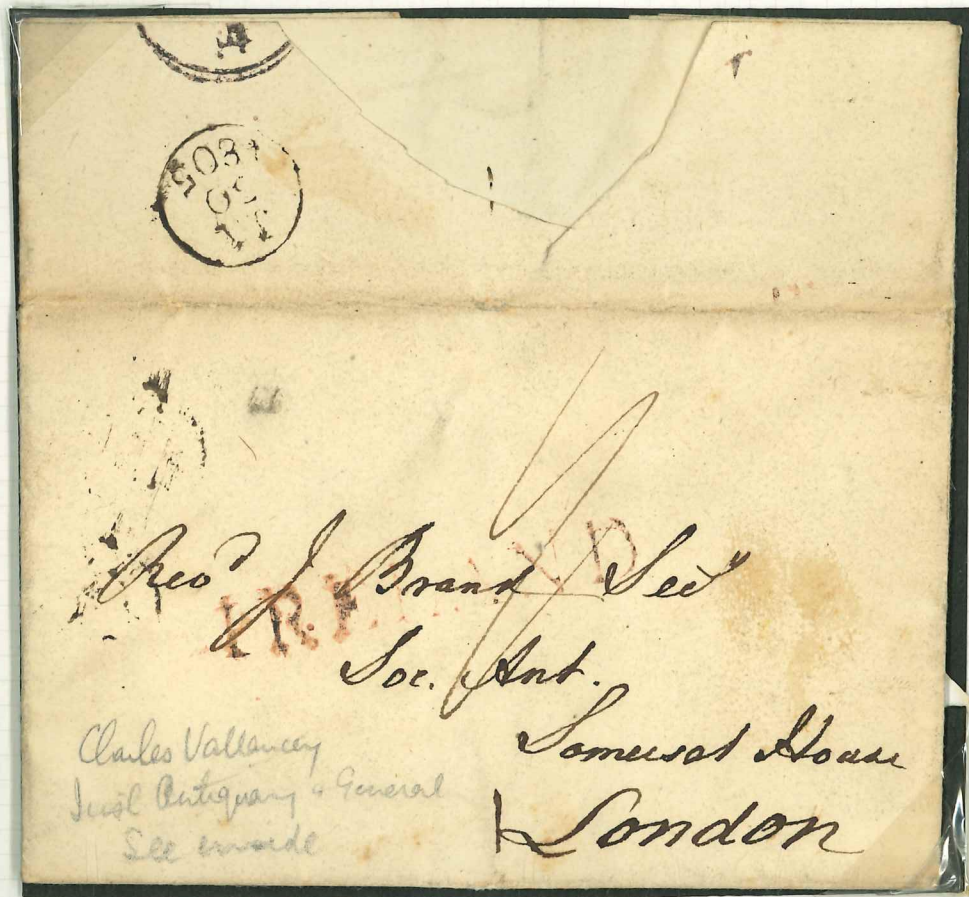 1805
Revd J Brand Secy
IRELAND
Soc. Ant.
Somerset House
London
Charles Vallancey
Irish Antiquary & General
See inside